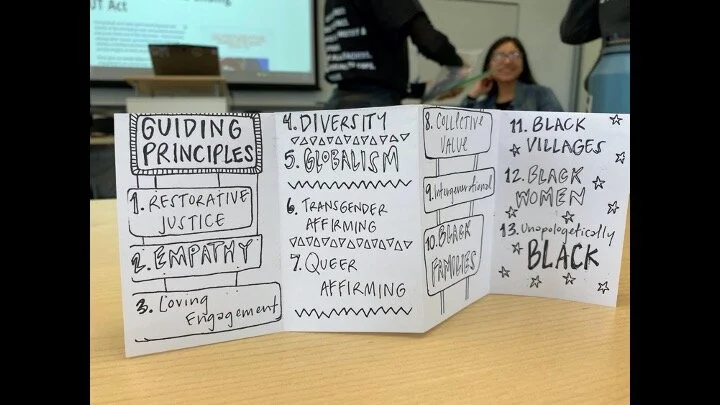 UT Act
GUIDING
PRINCIPLES
1. RESTORATIVE
JUSTICE
2. EMPATHY
3. Loving
Engagement
4. DIVERSITY
5. GLOBALISM
6. TRANSGENDER
AFFIRMING
7. QUEER
AFFIRMING
8. COLLECTIVE
VALUE
9. Intergenerational
10. BLACK
FAMILIES
11. BLACK
VILLAGES
12. BLACK
WOMEN
13. Unapologetically
BLACK